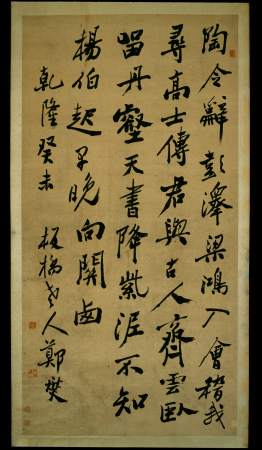 陶令辭彭澤梁鴻入會稽我
尋高士傳君與古人齊雲臥
留丹壑天書降紫泥不知
楊伯起早晚向關卥
乾隆癸未 板橋老人鄭燮